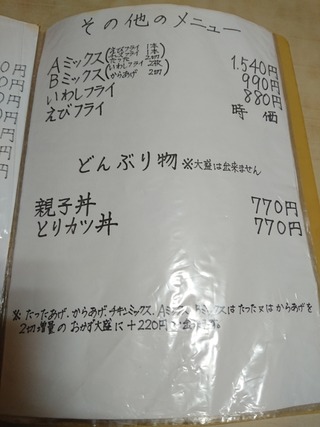 その他のメニュー
Aミックス(えびフライ 1本 2切) 1.540円
Bミックス(いわしフライ 2枚 からあげ 2切) 990円
いわしフライ 880円
えびフライ 時価
どんぶり物 ※大盛は出来ません
親子丼 770円
とりカツ丼 770円
※たったあげ、からあげ、チキンミックス、Aミックス、Bミックスはたった又はからあげを
2切増量のおかず大盛に+220円
0円
0円
0円
0円
円
円
円